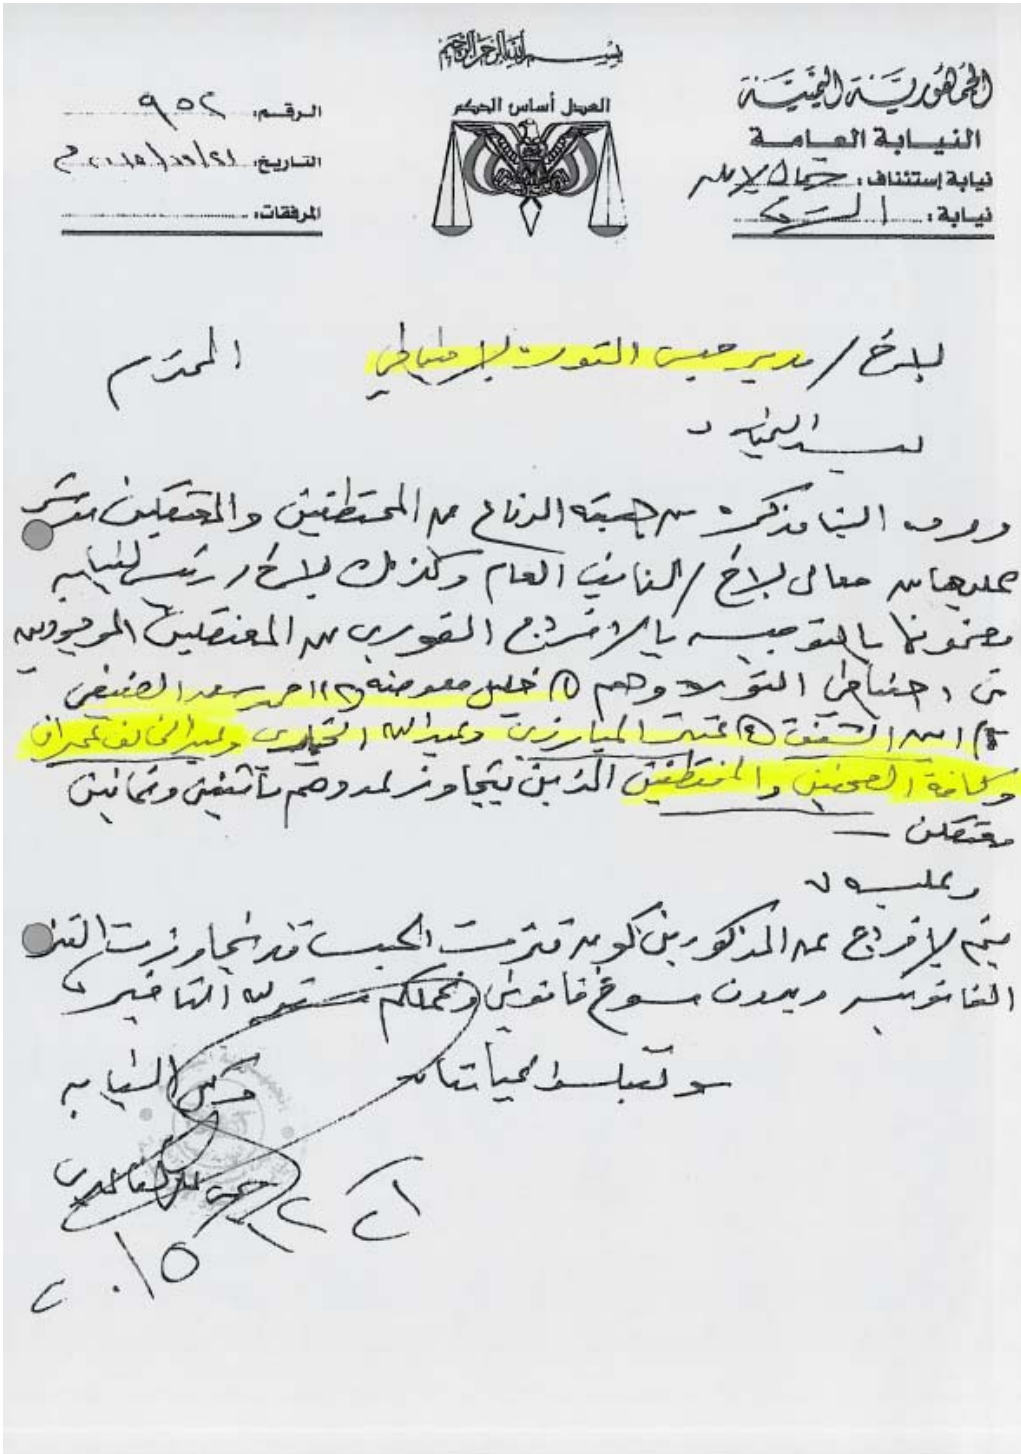 بسم الله الرحمن الرحيم
الجمهورية اليمنية
النيابة العامة
نيابة إستئناف: شمال الأمانة
نيابة:
العدل أساس الحكم
الرقم: ٩٥٢
التاريخ:
المرفقات:
الأخ / مدير حبس الثورة الاحتياطي المحترم
بعد التحية ،
وردت الينا مذكرة من هيئة الدفاع عن المختطفين والمعتقلين
عليها من معالي الأخ / النائب العام وكذلك الأخ / رئيس النيابة
مضمونها بالتوجيه بالافراج الفوري عن المعتقلين الموجودين
في احتياطي الثورة وهم (١) خليل معوضه (٢) احمد سعد
٣) امين الشفق (٤) المبارزي وعبدالله وعبدالخالق عمران
وكافة الصحفيين والمختطفين الذين يتجاوز عددهم مائتين وثمانين
معتقلا
وعليه ،
يتم الافراج عن المذكورين كون فترت الحبس قد تجاوزت
القانونية وبدون مسوغ قانوني ونحملكم مسئولية التأخير
وتقبلوا تحياتنا
وكيل النيابة